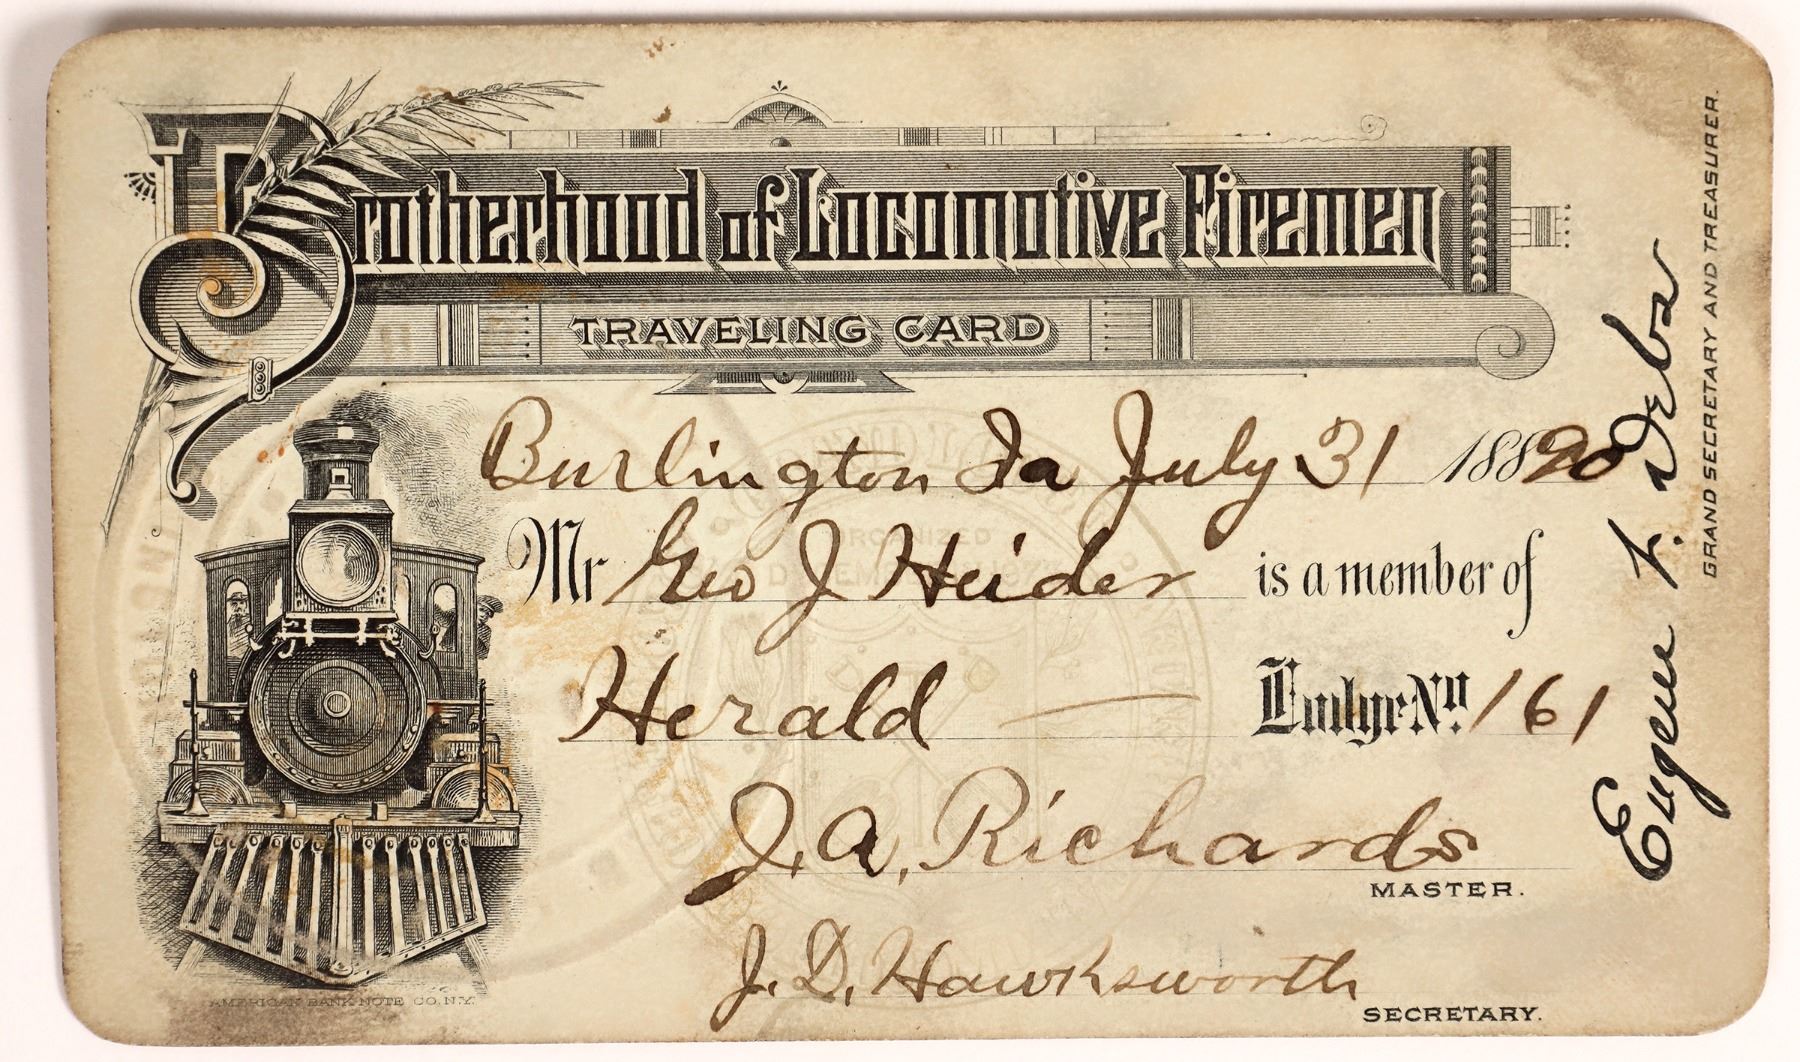 Brotherhood of Locomotive Firemen
TRAVELING CARD
Burlington Ia July 31 18890
Mr Geo J Heider is a member of
Herald — Lodge No. 161
J. A. Richards
MASTER.
J. D. Hawksworth
SECRETARY.
AMERICAN BANK NOTE CO. N.Y.
Eugene V. Debs
GRAND SECRETARY AND TREASURER.
ORGANIZED